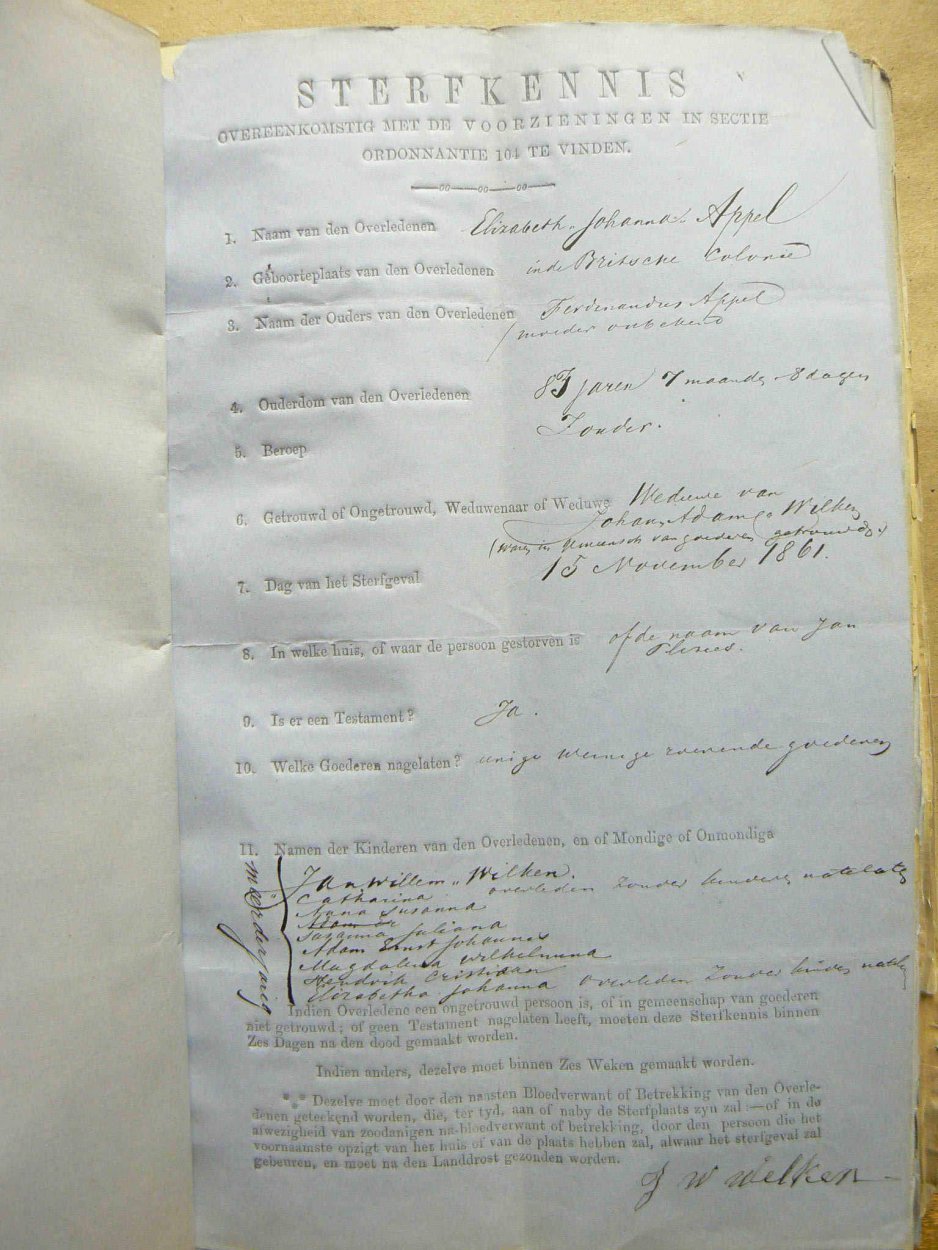 STERFKENNIS
OVEREENKOMSTIG MET DE VOORZIENINGEN IN SECTIE
ORDONNANTIE 104 TE VINDEN.
1. Naam van den Overledenen Elizabeth Johanna Appel
2. Geboorteplaats van den Overledenen in de Britsche Colonie
3. Naam der Ouders van den Overledenen Ferdenandus Appel
moeder onbekend
4. Ouderdom van den Overledenen 83 jaren 7 maande 8 dagen
5. Beroep Zonder.
6. Getrouwd of Ongetrouwd, Weduwenaar of Weduwe Weduwe van
Johan Adam Wilken
(ware in gemeensch van goederen getrouwd)
7. Dag van het Sterfgeval 15 November 1861.
8. In welke huis, of waar de persoon gestorven is of de naam van Jan
9. Is er een Testament? Ja.
10. Welke Goederen nagelaten? eenige weinige roerende goederen
11. Namen der Kinderen van den Overledenen, en of Mondige of Onmondiga
meerderjarig
Jan Willem Wilken.
Catharina overleden zonder kinders natelaten
Anna Susanna
Susanna Juliana
Adam Ernst Johannes
Magdalena Wilhelmina
Hendrik Cristiaan
Elizabetha Johanna overleden zonder kinders natelaten
Indien Overledene een ongetrouwd persoon is, of in gemeenschap van goederen
niet getrouwd; of geen Testament nagelaten heeft, moeten deze Sterfkennis binnen
Zes Dagen na den dood gemaakt worden.
Indien anders, dezelve moet binnen Zes Weken gemaakt worden.
*** Dezelve moet door den naasten Bloedverwant of Betrekking van den Overle-
denen geteekend worden, die, ter tyd, aan of naby de Sterfplaats zyn zal :—of in de
afwezigheid van zoodanigen na-bloedverwant of betrekking, door den persoon die het
voornaamste opzigt van het huis of van de plaats hebben zal, alwaar het sterfgeval zal
gebeuren, en moet na den Landdrost gezonden worden.
J W Wilken